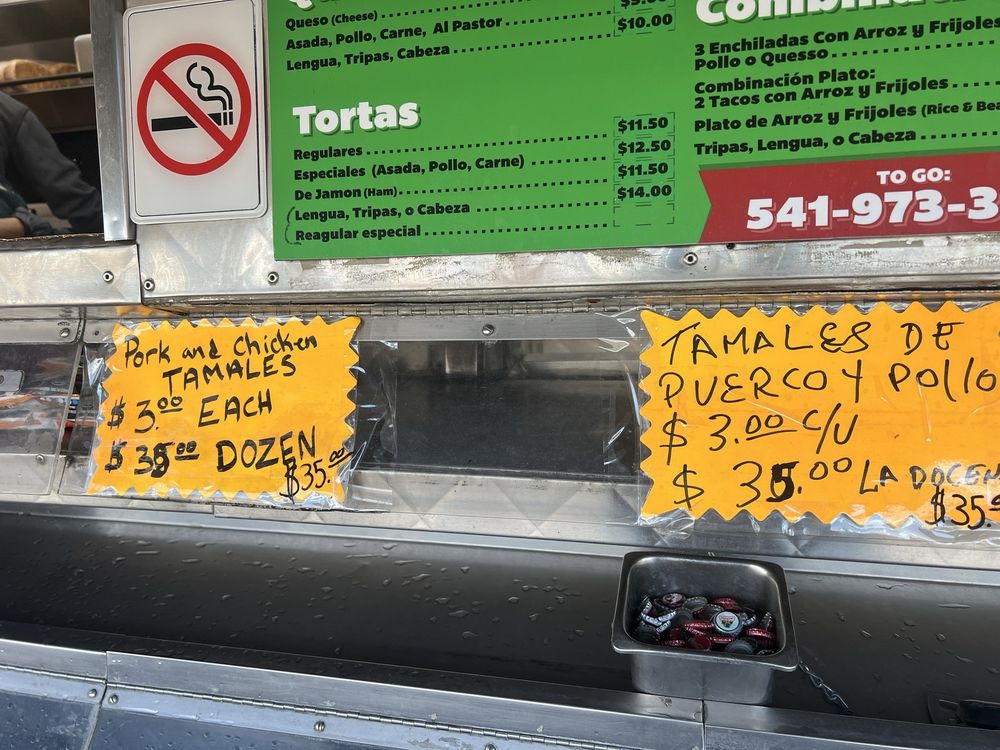 Queso (Cheese)
Asada, Pollo, Carne, Al Pastor
$10.00
Lengua, Tripas, Cabeza
Tortas
Regulares $11.50
Especiales (Asada, Pollo, Carne) $12.50
De Jamon (Ham) $11.50
Lengua, Tripas, o Cabeza $14.00
Reagular especial
3 Enchiladas Con Arroz y Frijoles
Pollo o Quesso
Combinación Plato:
2 Tacos con Arroz y Frijoles
Plato de Arroz y Frijoles (Rice &
Tripas, Lengua, o Cabeza
TO GO:
541-973-3
Pork and Chicken
TAMALES
$3.00 EACH
$35.00 DOZEN
$35.00
TAMALES DE
PUERCO Y POLLO
$3.00 C/U
$35.00 LA
$35.